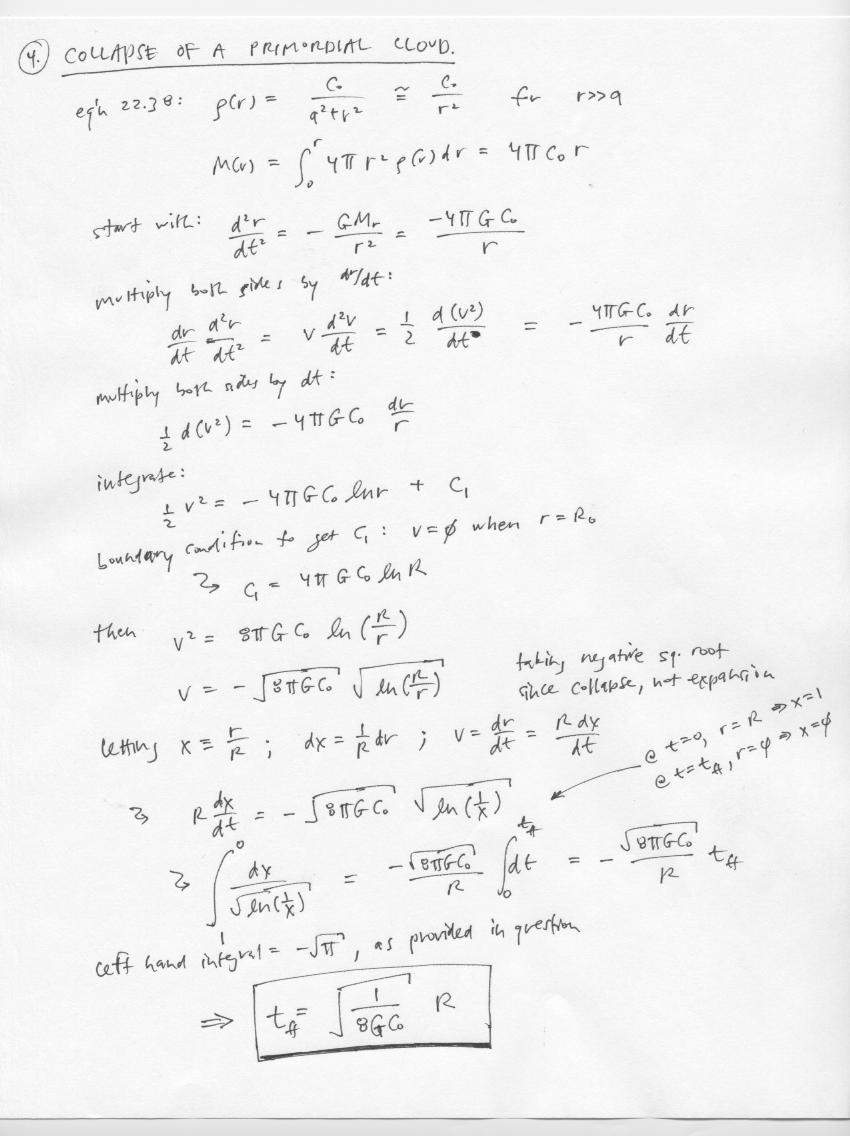 4. COLLAPSE OF A PRIMORDIAL CLOUD.
eq'n 22.38: ρ(r) = C₀/(a²+r²) ≅ C₀/r² for r>>a
M(r) = ∫₀ʳ 4π r² ρ(r) dr = 4π C₀ r
start with: d²r/dt² = - GMᵣ/r² = -4πG C₀/r
multiply both sides by dr/dt:
dr/dt d²r/dt² = v d²v/dt = 1/2 d(v²)/dt = - 4πG C₀/r dr/dt
multiply both sides by dt:
1/2 d(v²) = - 4πG C₀ dr/r
integrate:
1/2 v² = - 4πG C₀ ln r + C₁
boundary condition to get C₁ : v=∅ when r=R₀
↝ C₁ = 4πG C₀ ln R
then v² = 8πG C₀ ln (R/r)
v = - √(8πG C₀) √(ln(R/r))
taking negative sq. root
since collapse, not expansion
letting x ≡ r/R ; dx = 1/R dr ; v = dr/dt = R dx/dt
@ t=0, r=R ⇒ x=1
@ t=t_ff, r=∅ ⇒ x=∅
↝ R dx/dt = - √(8πG C₀) √(ln(1/x))
↝ ∫₁⁰ dx/√(ln(1/x)) = -√(8πG C₀)/R ∫₀^t_ff dt = - √(8πG C₀)/R t_ff
left hand integral = -√π, as provided in question
⇒ t_ff = √(1/(8G C₀)) R